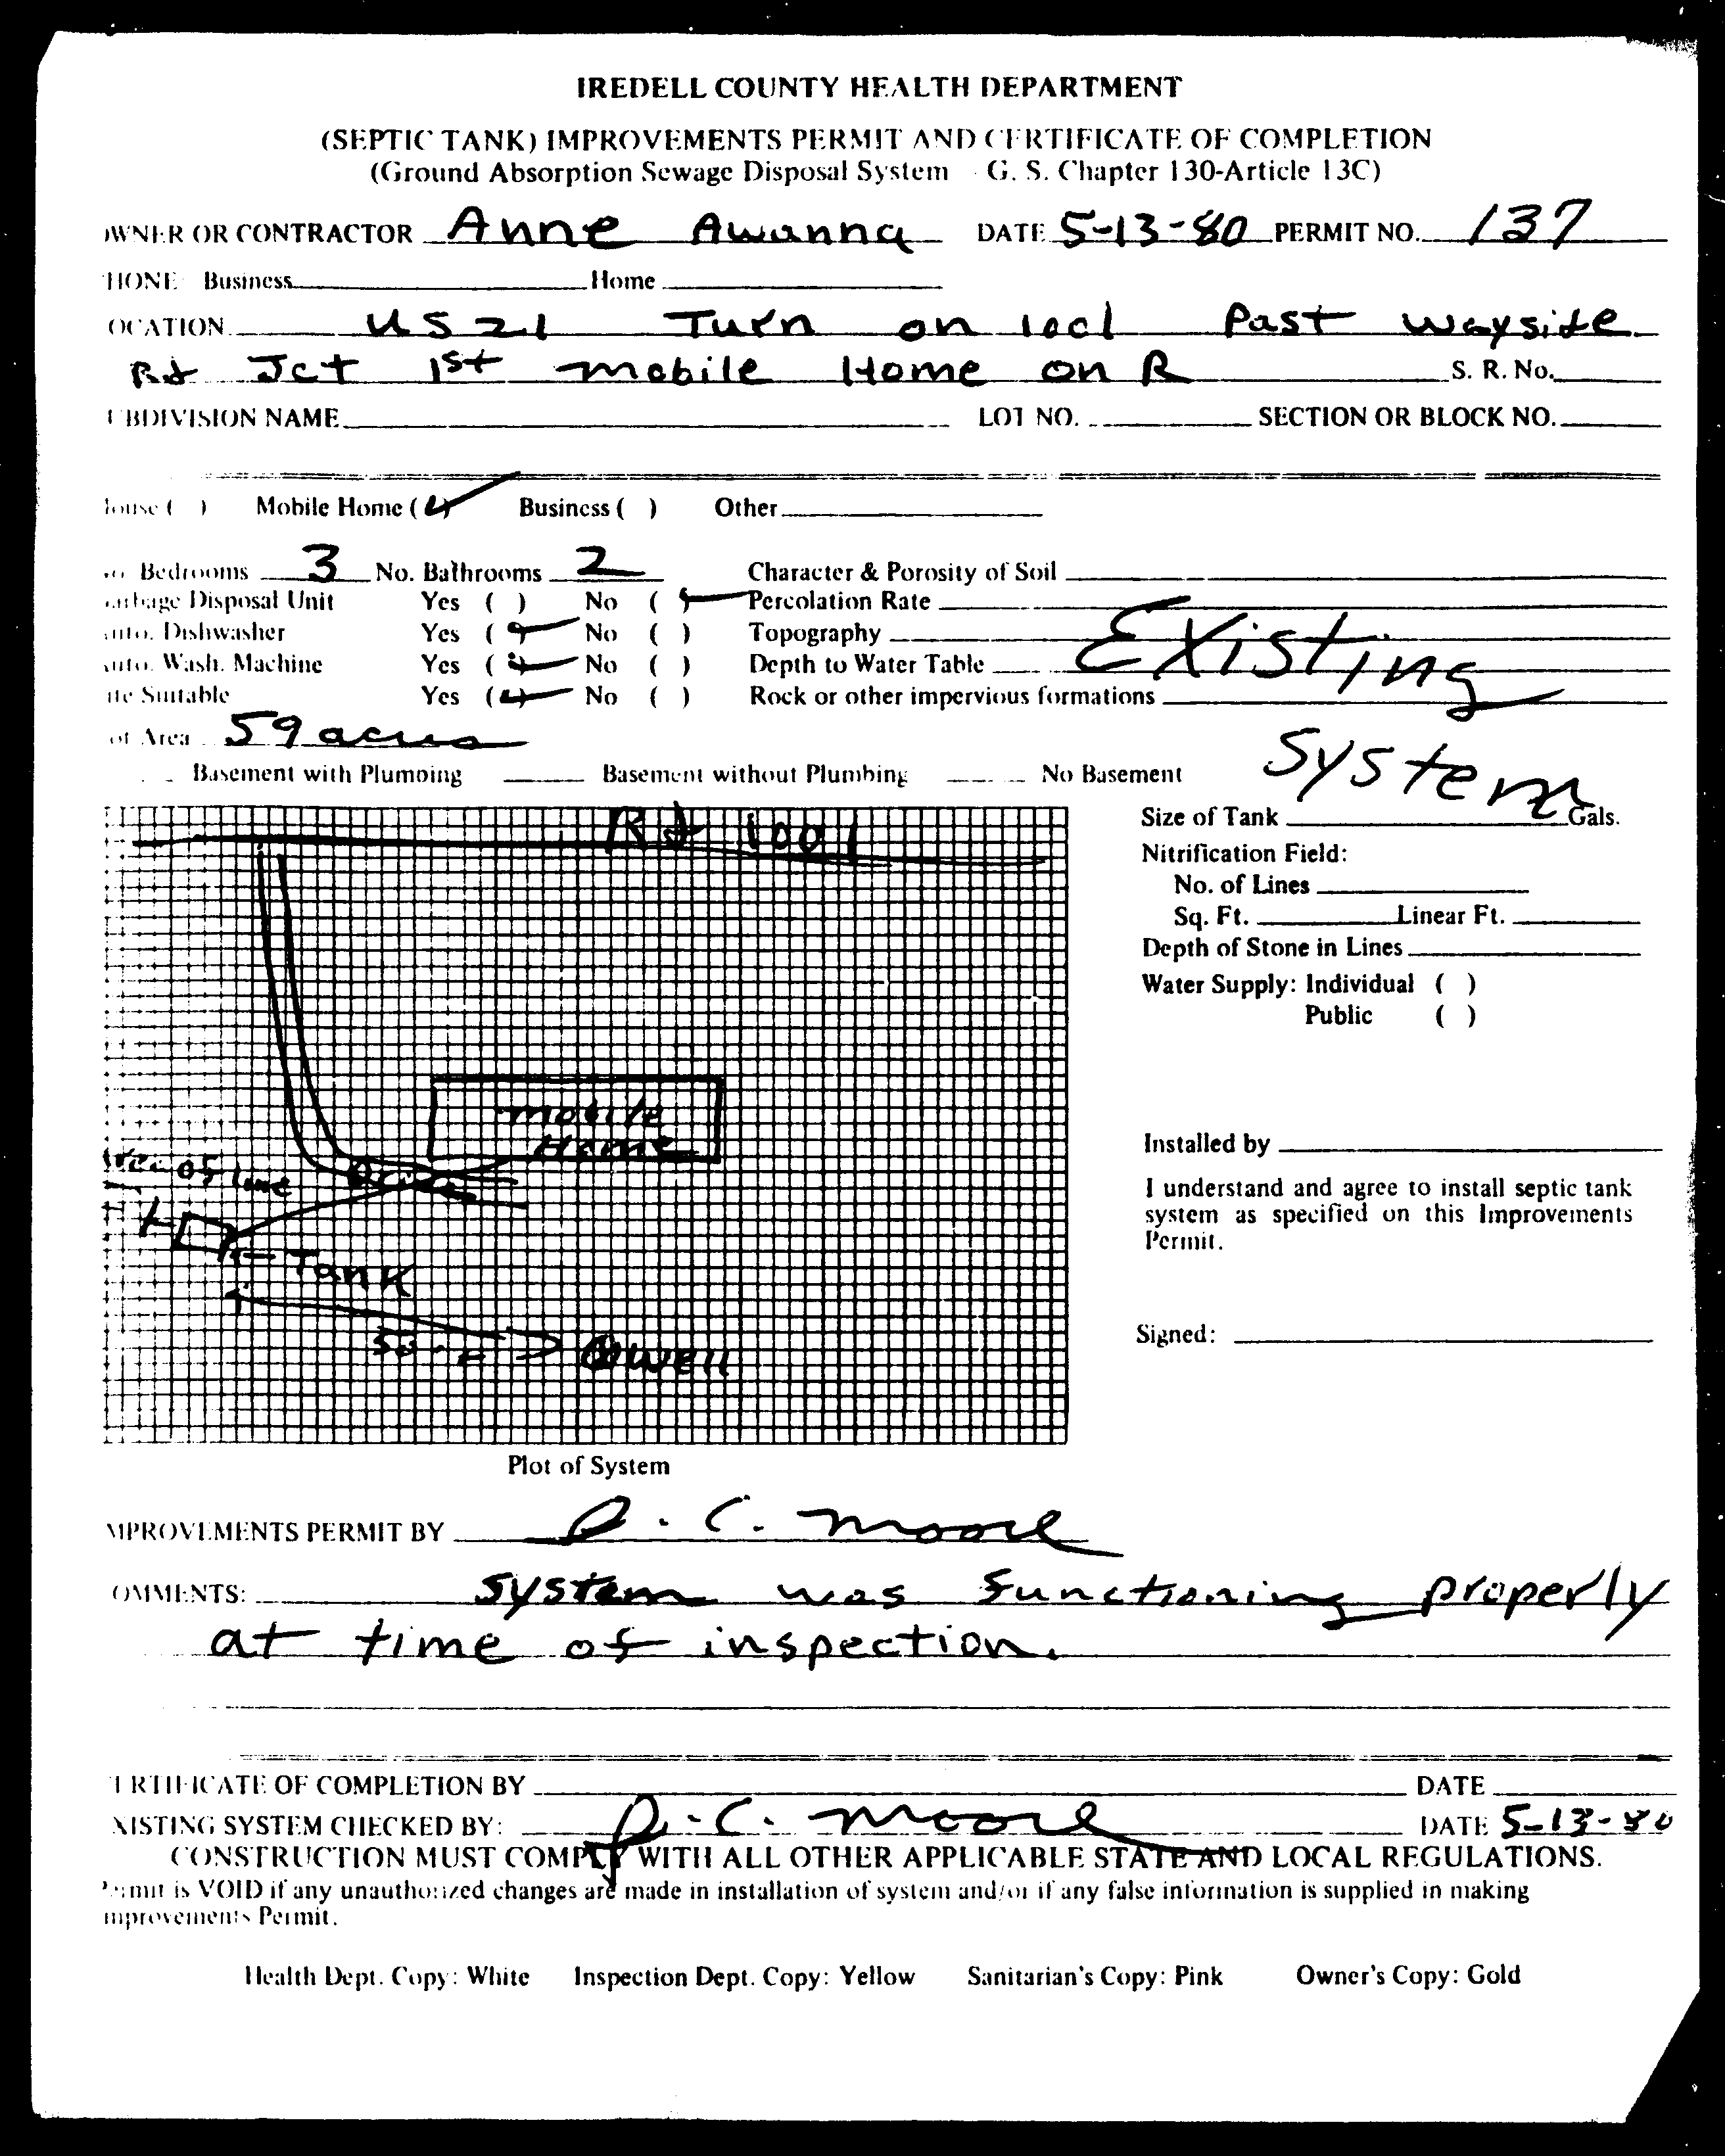 IREDELL COUNTY HEALTH DEPARTMENT
(SEPTIC TANK) IMPROVEMENTS PERMIT AND CERTIFICATE OF COMPLETION
(Ground Absorption Sewage Disposal System - G. S. Chapter 130-Article 13C)
OWNER OR CONTRACTOR Anne Awanna DATE 5-13-80 PERMIT NO. 137
PHONE: Business Home
OCATION US 21 Turn on 1001 Past Wayside
Rd Jct 1st mobile Home on R S. R. No.
UBDIVISION NAME LOT NO. SECTION OR BLOCK NO.
House ( ) Mobile Home (✓) Business ( ) Other
No. Bedrooms 3 No. Bathrooms 2 Character & Porosity of Soil
Garbage Disposal Unit Yes ( ) No (✓) Percolation Rate
Auto. Dishwasher Yes (✓) No ( ) Topography
Auto. Wash. Machine Yes (✓) No ( ) Depth to Water Table
ite Suitable Yes (✓) No ( ) Rock or other impervious formations
Existing
ot Area 59 acres
System
Basement with Plumbing Basement without Plumbing No Basement
Rd 1001
Size of Tank Gals.
Nitrification Field:
No. of Lines
Sq. Ft. Linear Ft.
Depth of Stone in Lines
Water Supply: Individual ( )
Public ( )
mobile
Home
Installed by
of line
Drive
I understand and agree to install septic tank
system as specified on this Improvements
Permit.
Tank
Signed:
50
Well
Plot of System
MPROVEMENTS PERMIT BY D. C. Moore
OMMENTS: System was functioning properly
at time of inspection.
ERTIFICATE OF COMPLETION BY DATE
XISTING SYSTEM CHECKED BY: D. C. Moore DATE 5-13-80
CONSTRUCTION MUST COMPLY WITH ALL OTHER APPLICABLE STATE AND LOCAL REGULATIONS.
Permit is VOID if any unauthorized changes are made in installation of system and/or if any false information is supplied in making
mprovements Permit.
Health Dept. Copy: White Inspection Dept. Copy: Yellow Sanitarian's Copy: Pink Owner's Copy: Gold